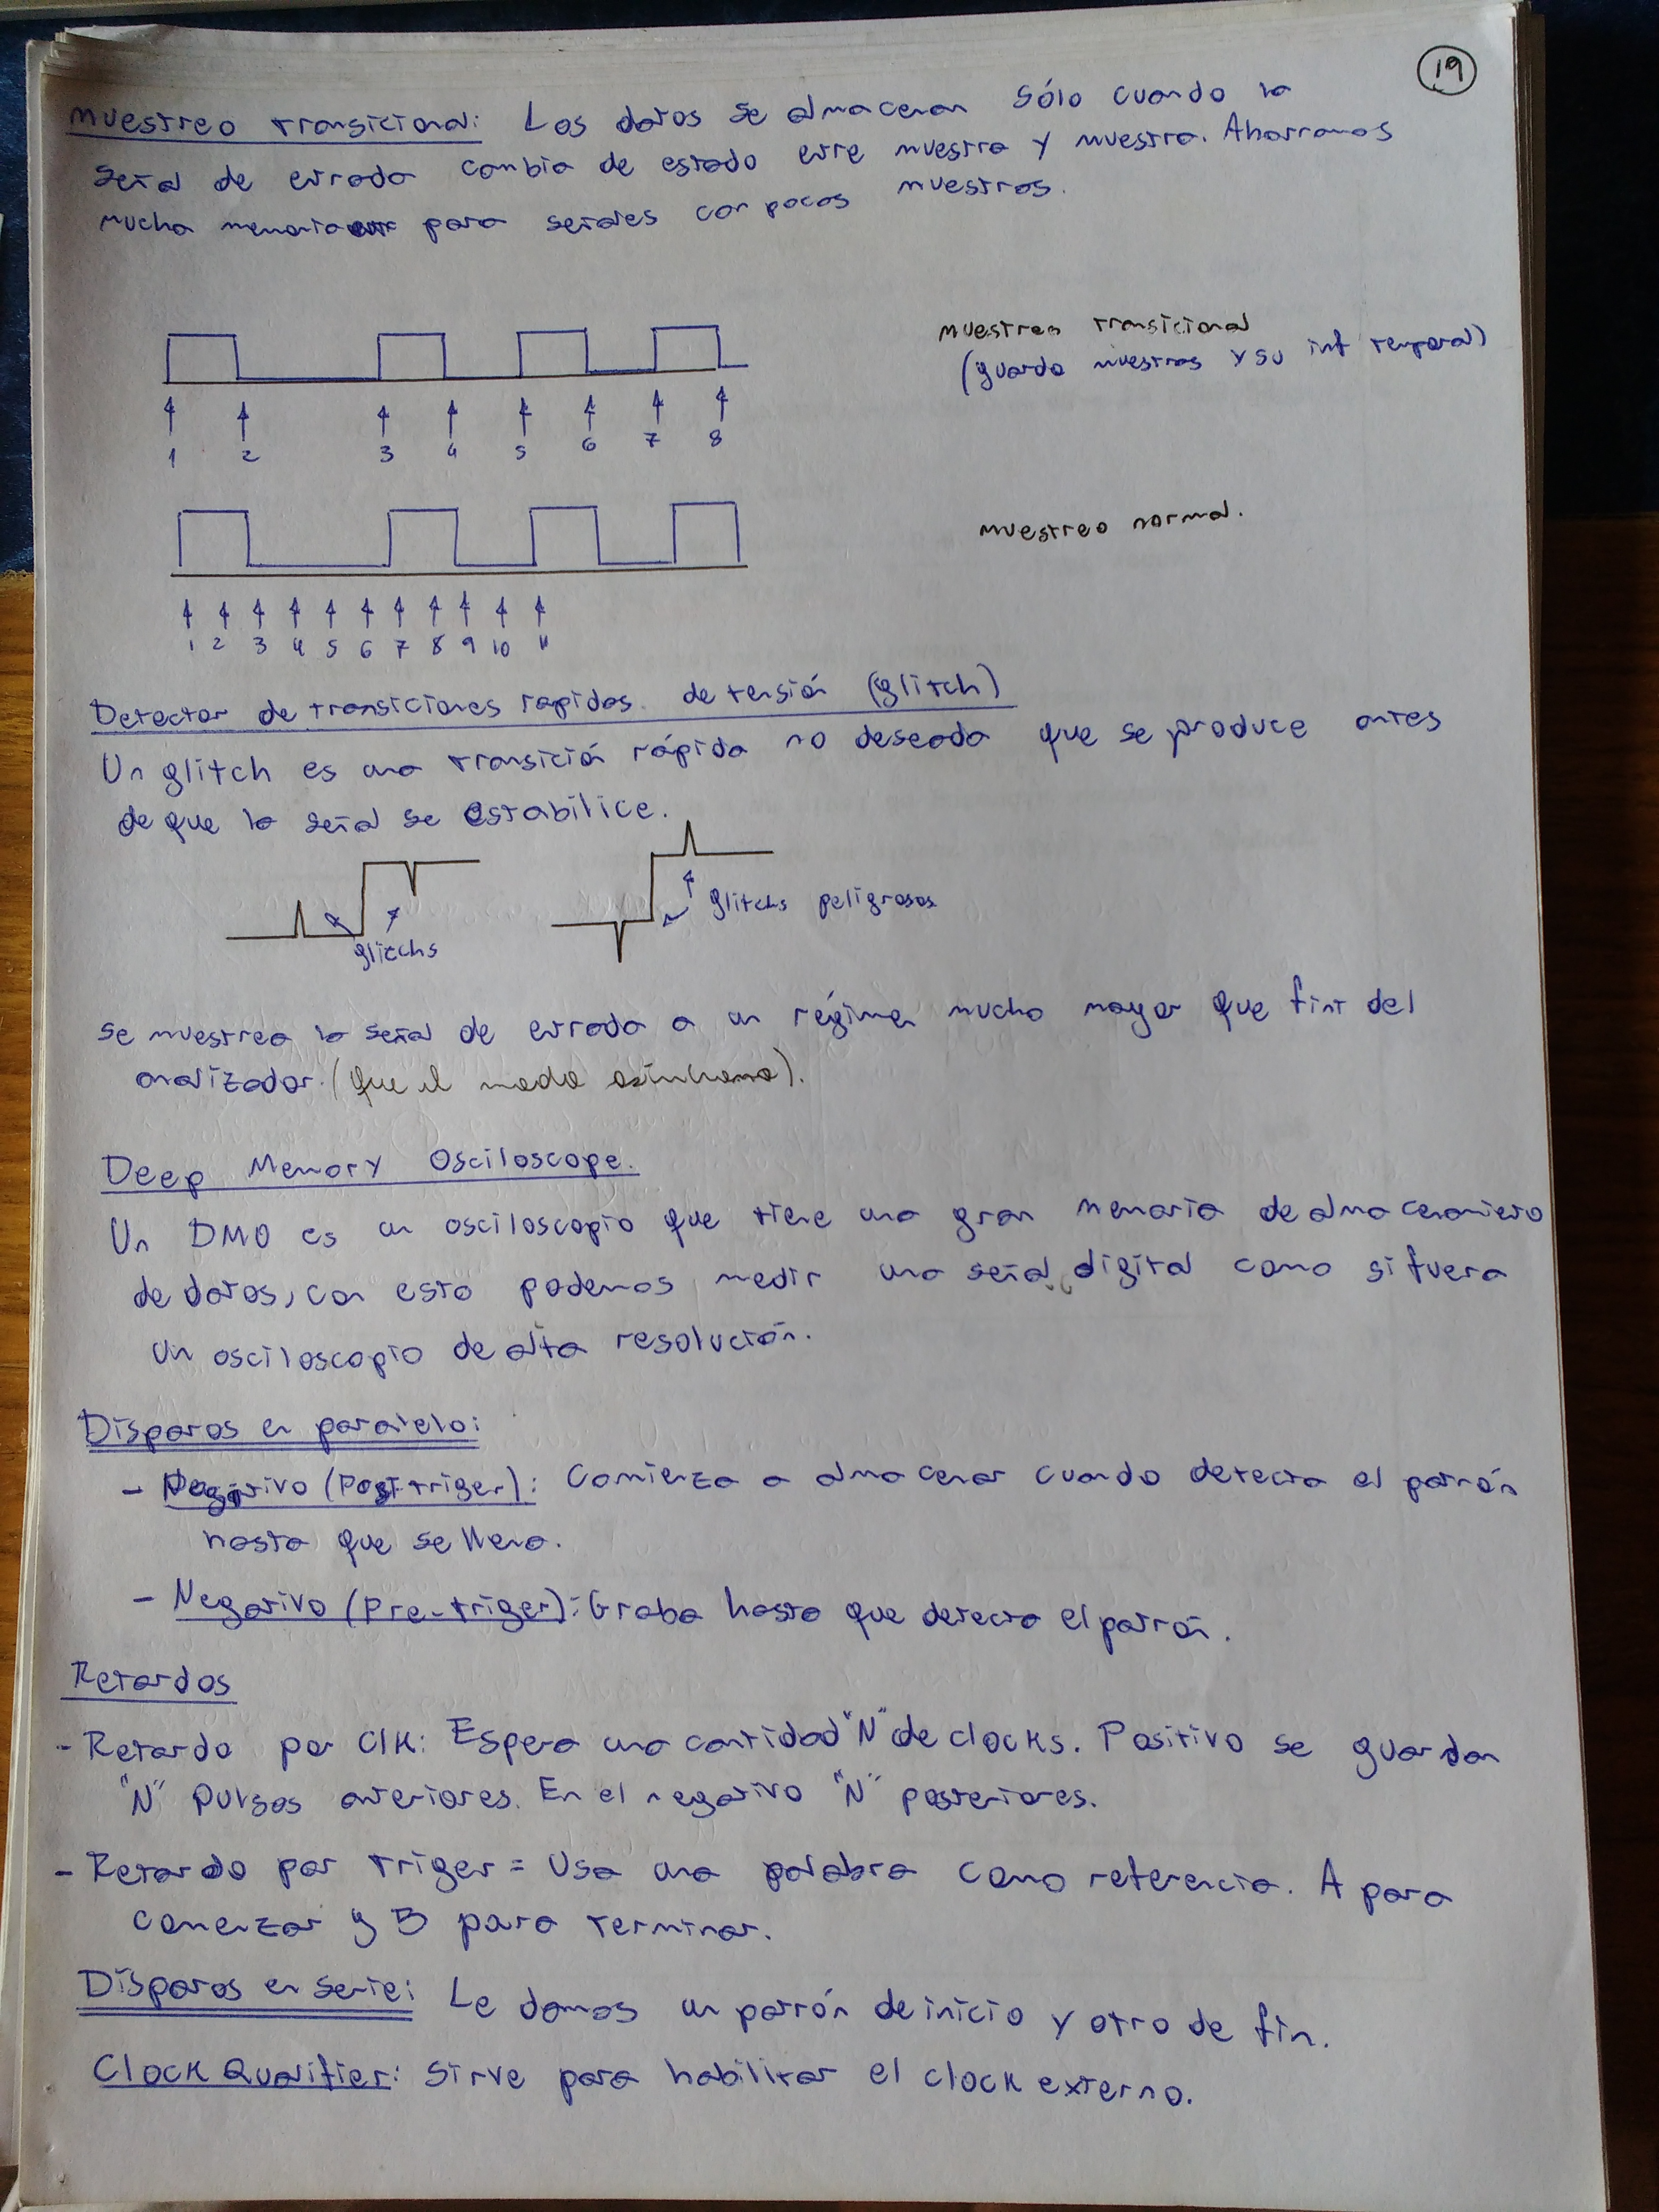 19
Muestreo transicional: Los datos se almacenan sólo cuando la
señal de entrada cambia de estado entre muestra y muestra. Ahorramos
mucha memoria para señales con pocas muestras.
muestreo transicional
(guarda muestras y su inf temporal)
1 2 3 4 5 6 7 8
muestreo normal.
1 2 3 4 5 6 7 8 9 10 11
Detector de transiciones rapidas de tensión (glitch)
Un glitch es una transición rápida no deseada que se produce antes
de que la señal se estabilice.
glitchs
glitchs peligrosos
se muestrea la señal de entrada a un régimen mucho mayor que fint del
analizador. (que el modo asíncrono).
Deep Memory Osciloscope.
Un DMO es un osciloscopio que tiene una gran memoria de almacenamiento
de datos, con esto podemos medir una señal digital como si fuera
un osciloscopio de alta resolución.
Disparos en paralelo:
- (Post triger): Comienza a almacenar cuando detecta el patrón
hasta que se llena.
- Negativo (Pre-triger): Graba hasta que detecta el patrón.
Retardos
- Retardo por Clk: Espera una cantidad "N" de clocks. Positivo se guardan
"N" pulsos anteriores. En el negativo "N" posteriores.
- Retardo por triger = Usa una palabra como referencia. A para
comenzar y B para terminar.
Disparos en serie: Le damos un patrón de inicio y otro de fin.
Clock Qualifier: Sirve para habilitar el clock externo.